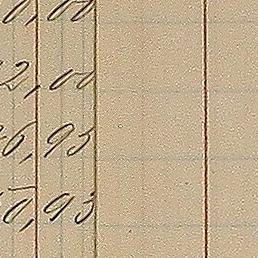 0,00
2,00
6,93
50,93